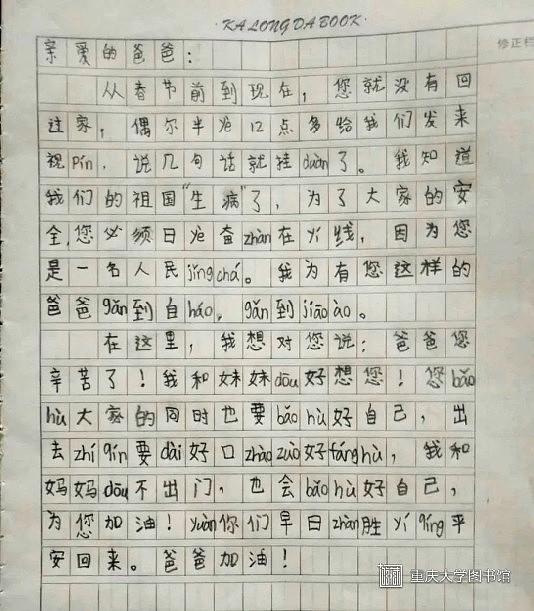 ·KALONGDA BOOK·
修正栏
亲爱的爸爸：
从春节前到现在，您就没有回
过家，偶尔半夜12点多给我们发来
视pín，说几句话就挂duàn了。我知道
我们的祖国“生病”了，为了大家的安
全，您必须日夜奋zhàn在火线，因为您
是一名人民jǐngchá。我为有您这样的
爸爸gǎn到自háo，gǎn到jiāoào。
在这里，我想对您说：爸爸您
辛苦了！我和妹妹dōu好想您！您bǎo
hù大家的同时也要bǎohù好自己，出
去zhíqín要dài好口zhào zuò好fánghù，我和
妈妈dōu不出门，也会bǎohù好自己，
为您加油！yuàn你们早日zhàn胜yìqíng平
安回来。爸爸加油！
重庆大学图书馆